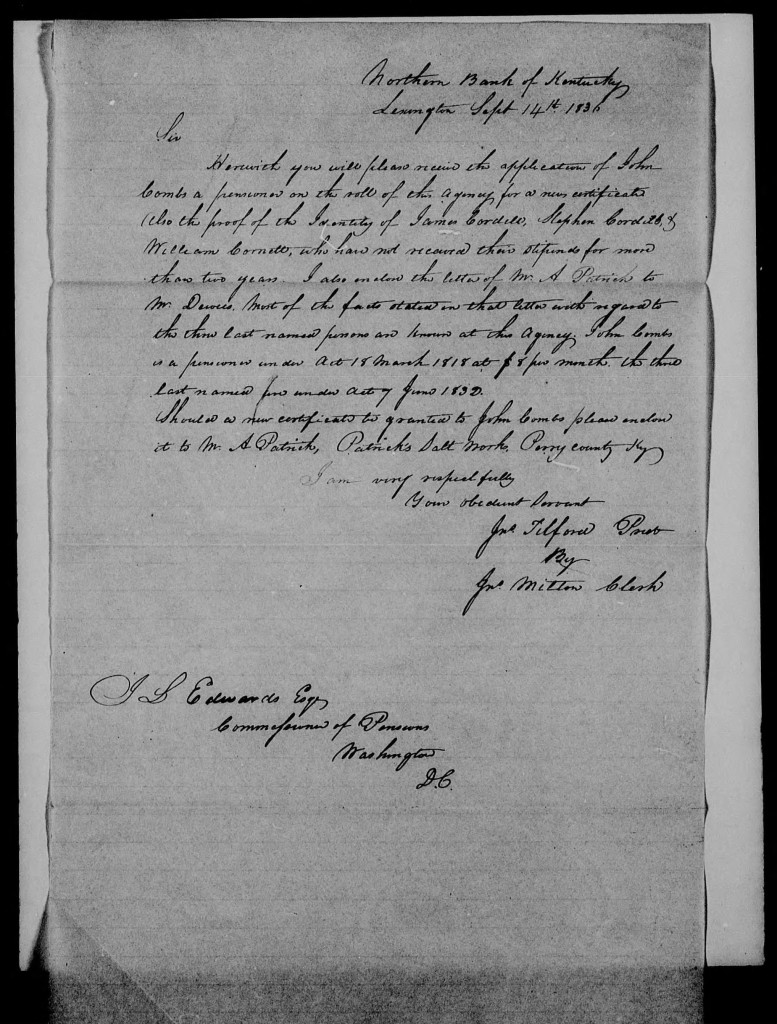 Northern Bank of Kentucky
Lexington Sept 14th 1836
Sir
Herewith you will please receive the application of John
Combs a pensioner on the roll of this Agency for a new certificate
Also the proof of the Identity of James Cordell, Stephen Cordill, &
William Cornett, who have not received their stipends for more
than two years. I also enclose the letter of Mr. A Patrick to
Mr. Dewees. Most of the facts stated in that letter with regard to
the three last named persons are known at this Agency. John Combs
is a pensioner under Act 18 March 1818 at $8 per month. the three
last named are under act 7 June 1832.
Should a new certificate be granted to John Combs please enclose
it to Mr. A Patrick, Patricks Salt Works, Perry county Ky
I am very respectfully
Your obedient Servant
Jno Tilford Prest
By
Jno Milton Clerk
J L Edwards Esqr
Commissioner of Pensions
Washington
D.C.